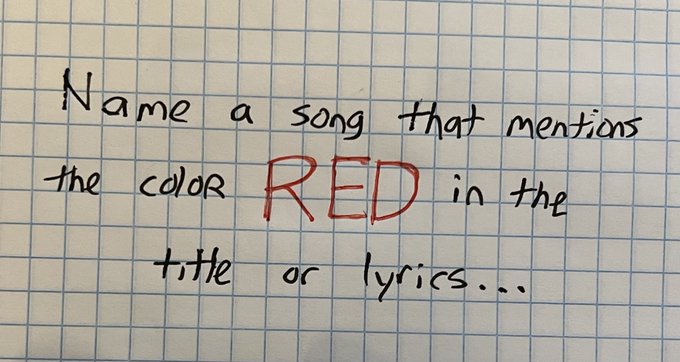 Name a song that mentions
the color RED in the
title or lyrics...